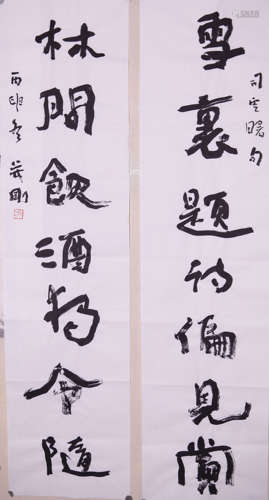 雪裏題詩偏見賞
司空曙句
林間飲酒獨令隨
丙申冬